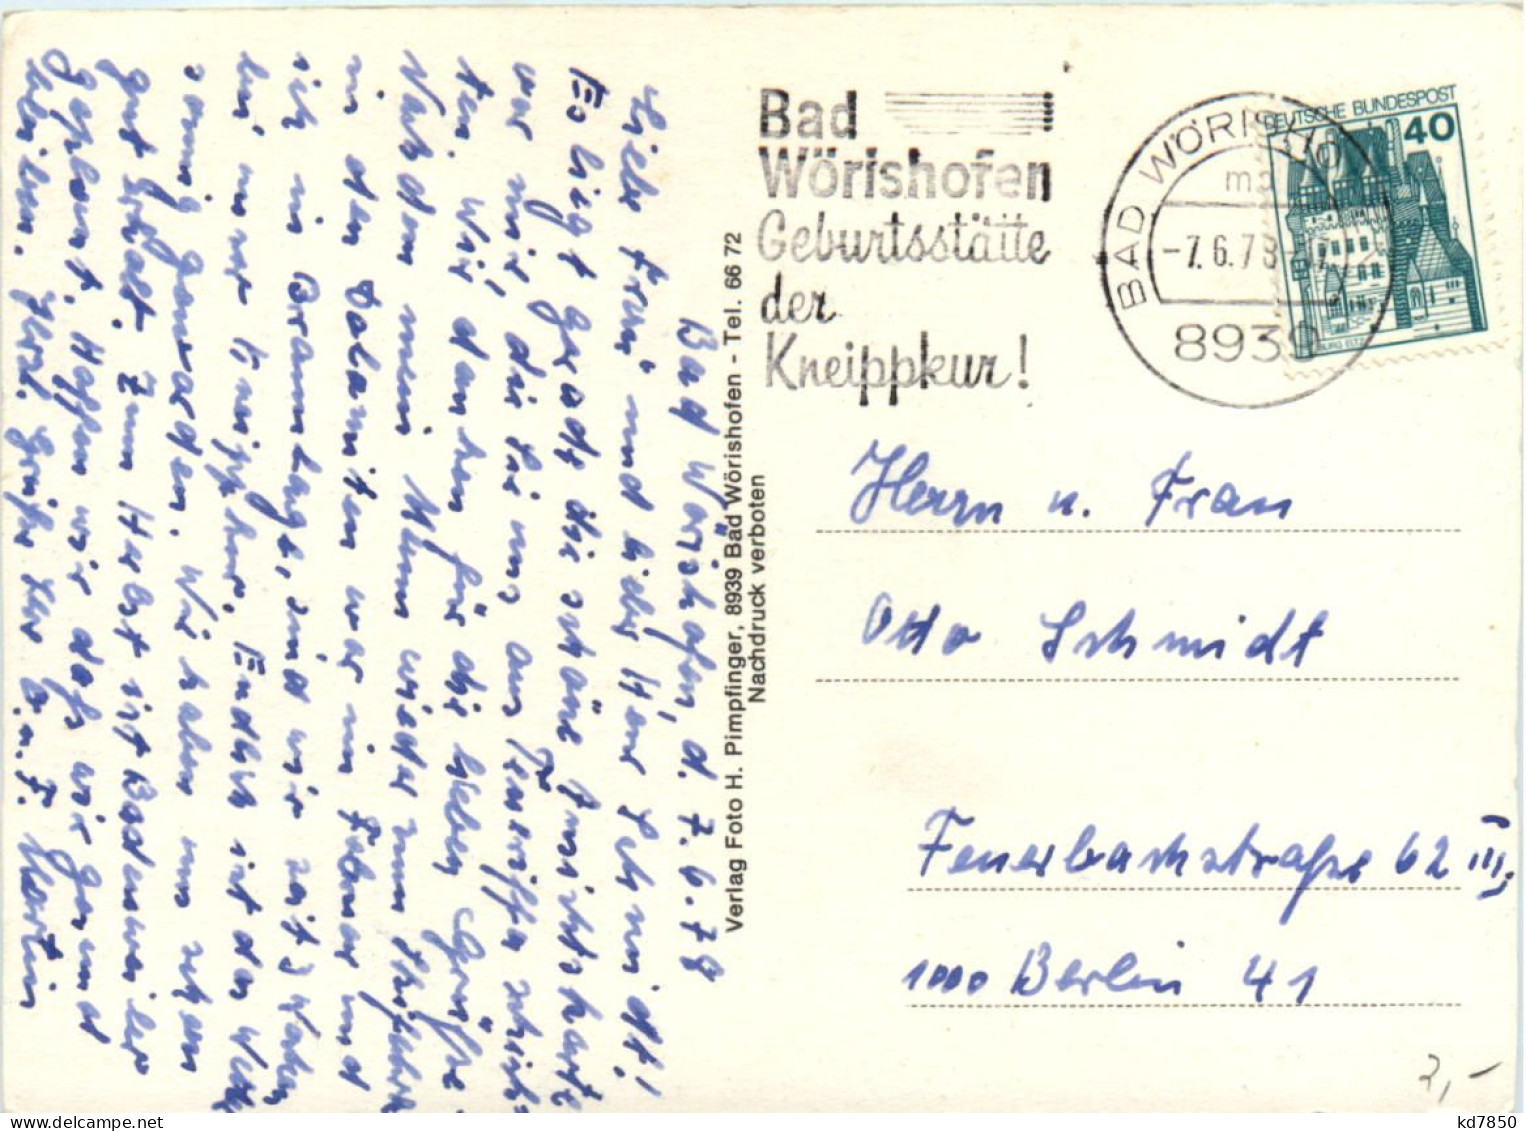 Bad Wörishofen, d. 7.6.78
Liebe Frau und lieber Herr Schmidt!
Es liegt gerade die schöne Ansichtskarte
vor mir, die Sie uns aus Teneriffa schick-
ten. Wir danken für die lieben Grüße.
Nachdem mein Mann wieder zum Skifahren
in den Dolomiten war im Februar und
ich in Bramberg, sind wir seit 3 Wochen
bei einer Kneippkur. Endlich ist das Wetter
sonnig geworden. Wir haben uns schon
gut erholt. Zum Herbst ist Badenweiler
geplant. Hoffen wir daß wir gesund
bleiben. Herzl. Grüße Ihre E. u. F. Martin
Verlag Foto H. Pimpfinger, 8939 Bad Wörishofen - Tel. 66 72
Nachdruck verboten
Bad
Wörishofen
Geburtsstätte
der
Kneippkur!
BAD WÖRISHO
-7.6.78
8939
DEUTSCHE BUNDESPOST
40
Herrn u. Frau
Otto Schmidt
Feuerbachstraße 62 III,
1000 Berlin 41
2,-
kd7850